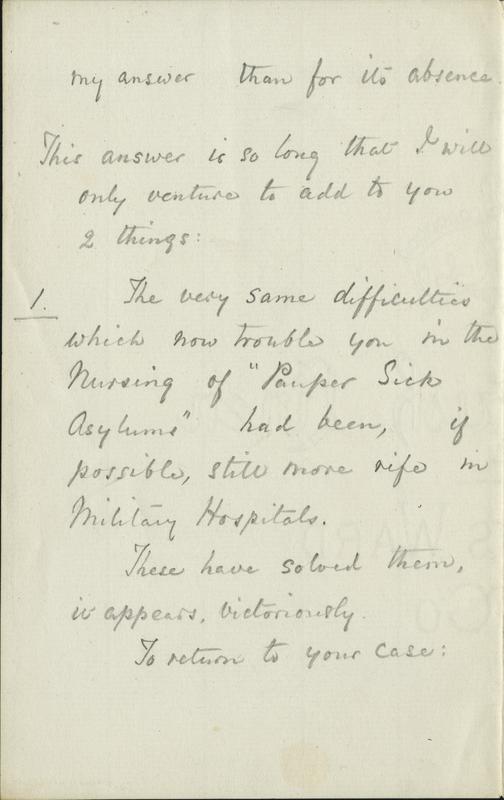 my answer than for its absence.
This answer is so long that I will
only venture to add to you
2 things:
1. The very same difficulties
which now trouble you in the
Nursing of "Pauper Sick
Asylums" had been, if
possible, still more rife in
Military Hospitals.
These have solved them,
it appears, victoriously.
To return to your case: